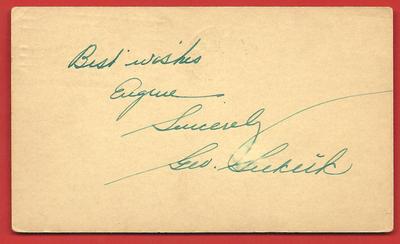 Best wishes
Eugene
Sincerely
Geo.